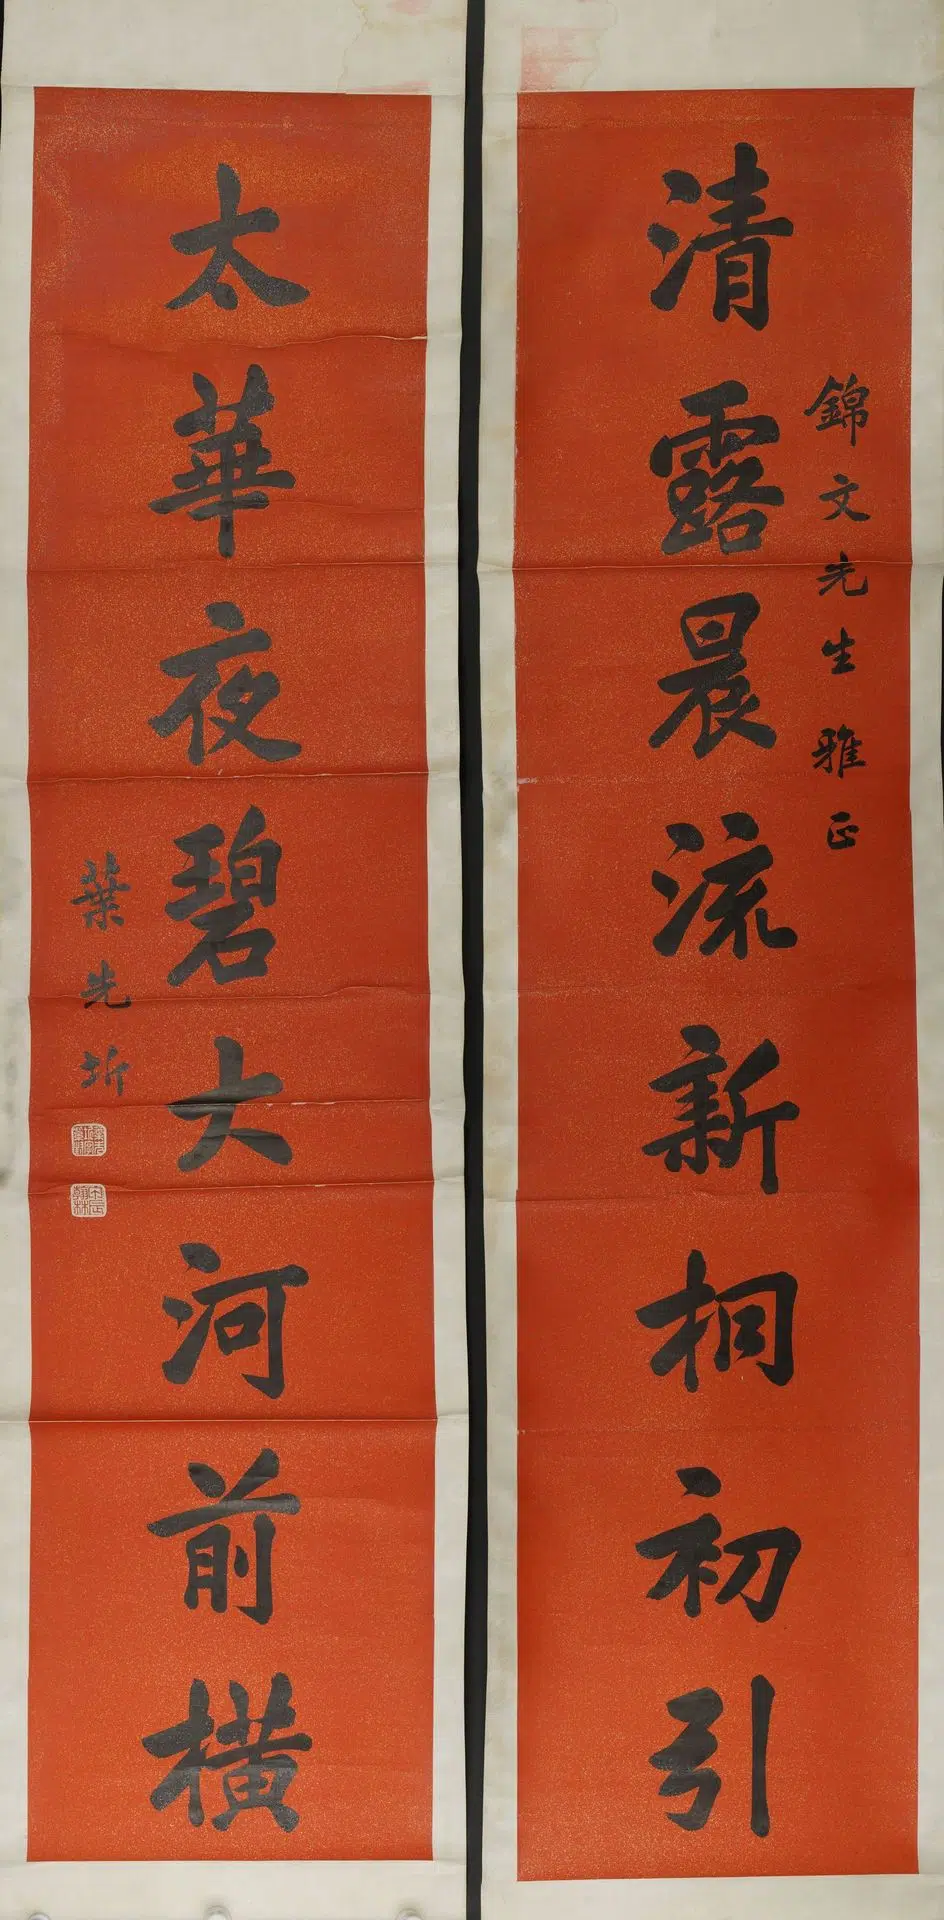 錦文先生雅正
清露晨流新桐初引
太華夜碧大河前橫
葉先圻